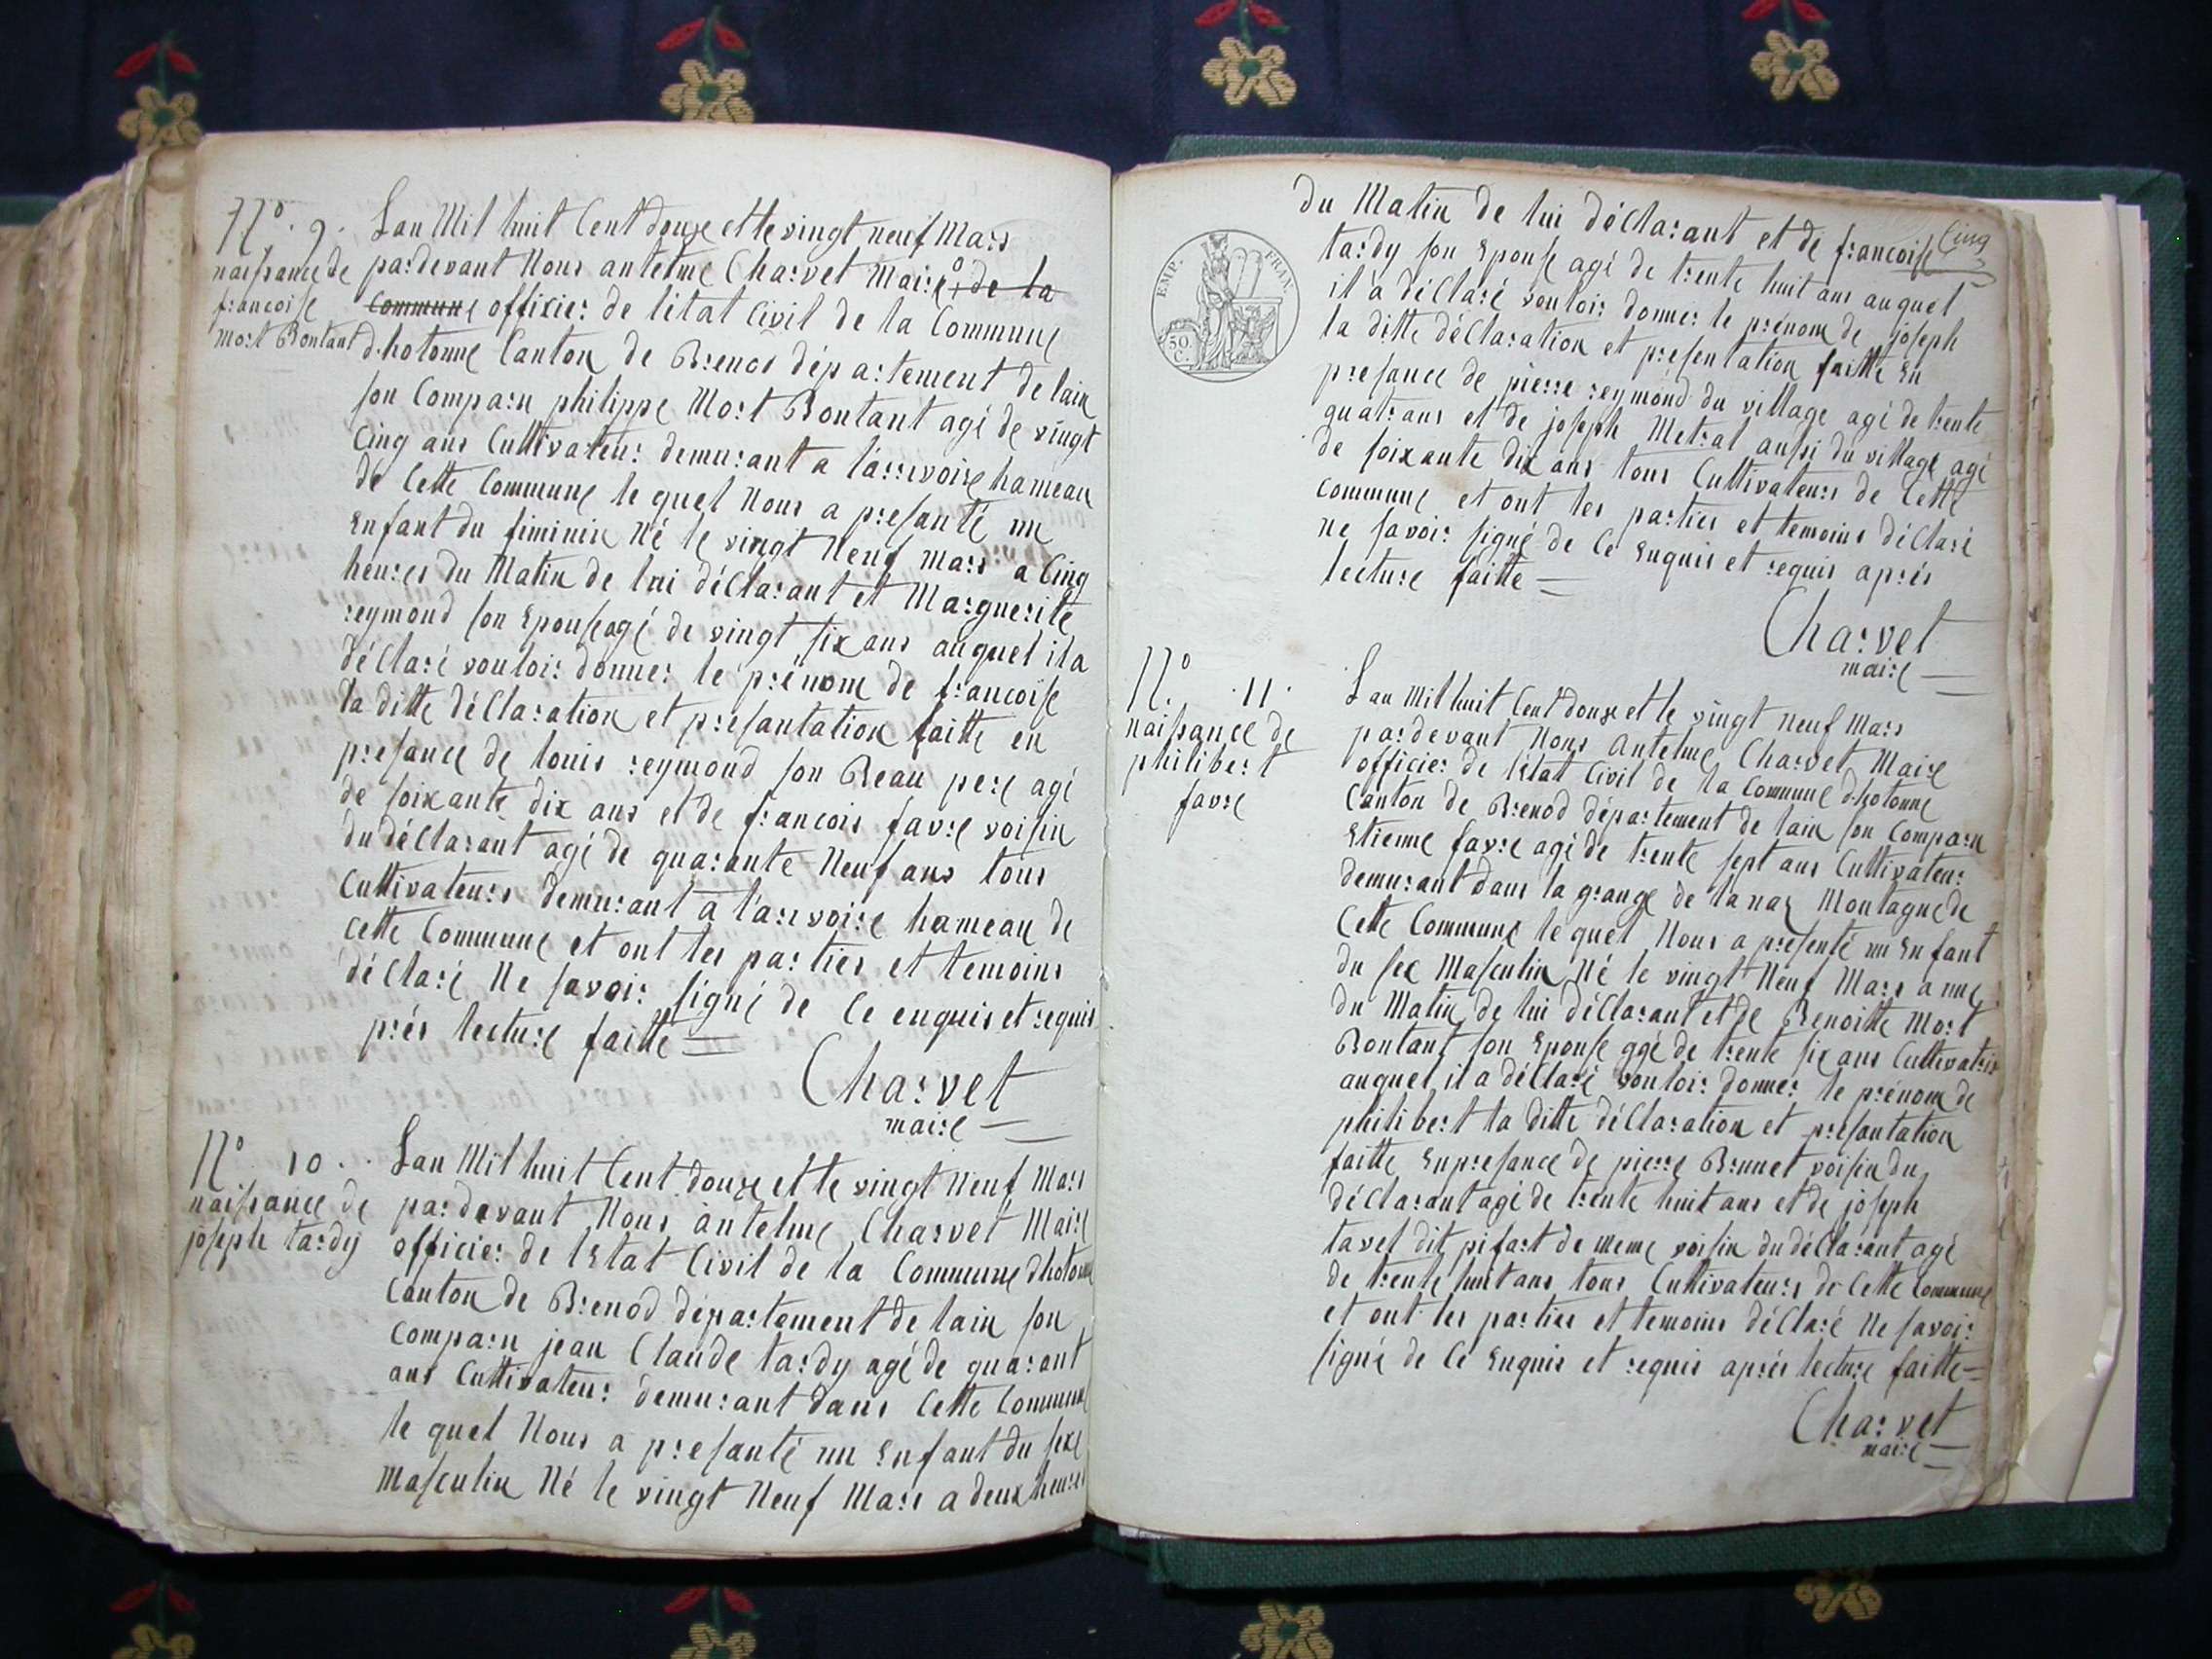 N.º 9.
naissance de
francoise
mort Bontant
Lan Mil huit Cent douze et le vingt neuf Mars
pardevant Nous antelme Charvet Maire de la
Commune officier de létat Civil de la Commune
d.hotonne Canton de Brenod département de lain
son Comparu philippe Mort Bontant agé de vingt
Cinq ans Cultivateur demurant a larrvoire hameau
de Cette Commune le quel Nous a presanté un
Enfant du fiminin Né le vingt Neuf Mars a Cinq
heures du Matin de lui déClarant et Marguerite
reymond son Epouse agé de vingt six ans auquel il a
déClaré vouloir donner le prénom de francoise
la ditte déClaration et presantation faitte en
presance de louis reymond son Beau pere agé
de soixante dix ans et de francois favre voisin
du déClarant agé de quarante Neuf ans tous
Cultivateurs demurant a l'arvoire hameau de
Cette Commune et ont les parties et temoins
déClaré Ne savoir signé de Ce enquis et requis
prés lecture faitte
Charvet
maire
N.º 10.
naissance de
joseph tardy
Lan Mil huit Cent douze et le vingt Neuf Mars
pardevant Nous antelme Charvet Maire
officier de lEtat Civil de la Commune dhotonne
Canton de Brenod département de lain son
Comparu jean Claude tardy agé de quarant
ans Cultivateur demurant dans Cette Commune
le quel Nous a presanté un Enfant du sexe
Masculin Né le vingt Neuf Mars a deux heures
Cinq
EMP. FRAN.
50 C.
du Matin de lui déClarant et de francoise
tardy son Epouse agé de trente huit ans auquel
il à déClaré vouloir donner le prénom de joseph
la ditte déClaration et presentation faitte En
presance de pierre reymond du village agé de trente
quatr ans et de joseph Metral aussi du village agé
de soixante dix ans tous Cultivateurs de Cette
Commune et ont les parties et temoins déClaré
ne savoir signé de Ce Enquis et requis aprés
lecture faitte
Charvet
maire
N.º 11.
naissance de
philibert
favre
Lan Mil huit Cent douze et le vingt neuf Mars
pardevant Nous Antelme Charvet Maire
officier de létat Civil de la Commune d.hotonne
Canton de Brenod département de lain son Comparu
Etienne favre agé de trente sept ans Cultivateur
demurant dans la grange de la naz Montagne de
Cette Commune le quel Nous a presenté un Enfant
du sex Masculin Né le vingt Neuf Mars a une
du Matin de lui déClarant et de Benoitte Mort
Bontant son Epouse agé de trente six ans Cultivatris
auquel il a déClaré vouloir donner le prénom de
philibert la ditte déClaration et presantation
faitte En presance de pierre Brunet voisin du
déClarant agé de trente huit ans et de joseph
tavel dit pifart de meme voisin du déClarant agé
de trente huit ans tous Cultivateurs de Cette Commune
et ont les parties et temoins déClaré Ne savoir
signé de Ce Enquis et requis aprés lecture faitte
Charvet
maire